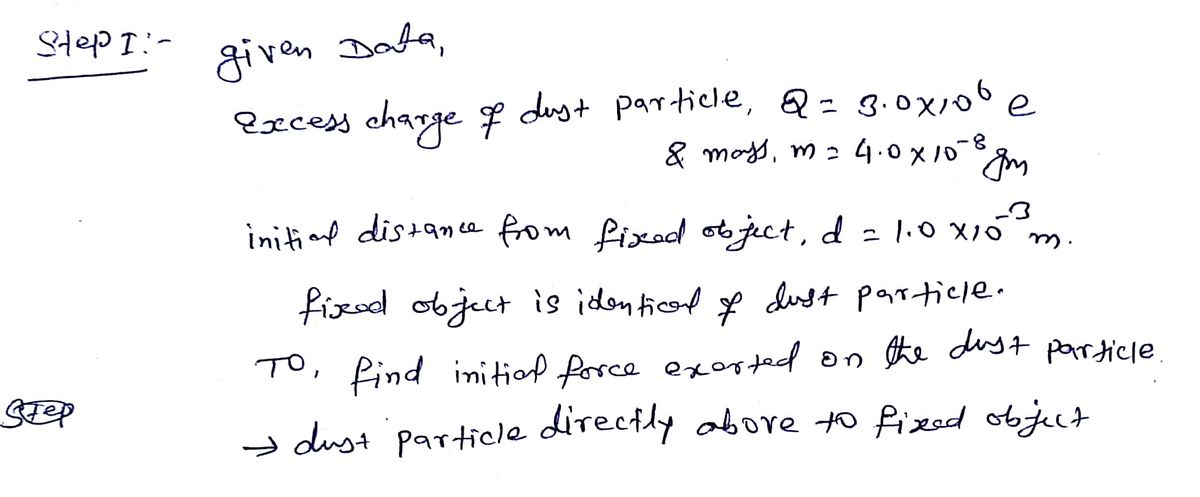 Step I:- given Data,
Excess charge of dust particle, Q = 3.0x10⁶ e
& mass, m = 4.0 x 10⁻⁸ gm
initial distance from fixed object, d = 1.0 x10⁻³ m.
fixed object is identical of dust particle.
TO, find initial force exerted on the dust particle.
Step
→ dust particle directly above to fixed object